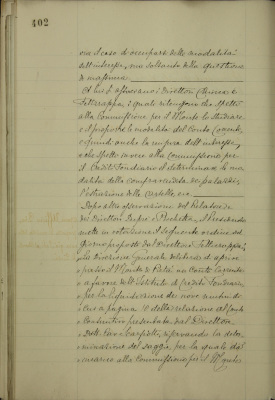 402
sia il caso di occuparsi della modalità
dell'interesse, ma soltanto della questione
di massima.
A lui si associano i Direttori
Fattarappa, i quali ritengono che spetta
alla Commissione per il Monte lo studiare
e il proporre le modalità del Conto Corrente,
e quindi anche la misura dell'interesse,
e che spetta invece alla Commissione per
il Credito Fondiario il determinare le mo
dalità della compra-vendita
l'estrazione delle cartelle, ecc.
Dopo altre osservazioni del Relatore e
dei Direttori e Rochetta, il Presidente
mette in votazione il seguente ordine del
giorno proposto dal Direttore Fattarappa:
La Direzione Generale delibera di aprire
presso il Monte di Pietà un Conto Corrente
a favore dell'Istituto di Credito Fondiario
per la
a pagina 8 della relazione al Conto
Consuntivo presentata dal Direttore
riservando la deter
minazione del saggio, per la quale dà
incarico alla Commissione per il Monte